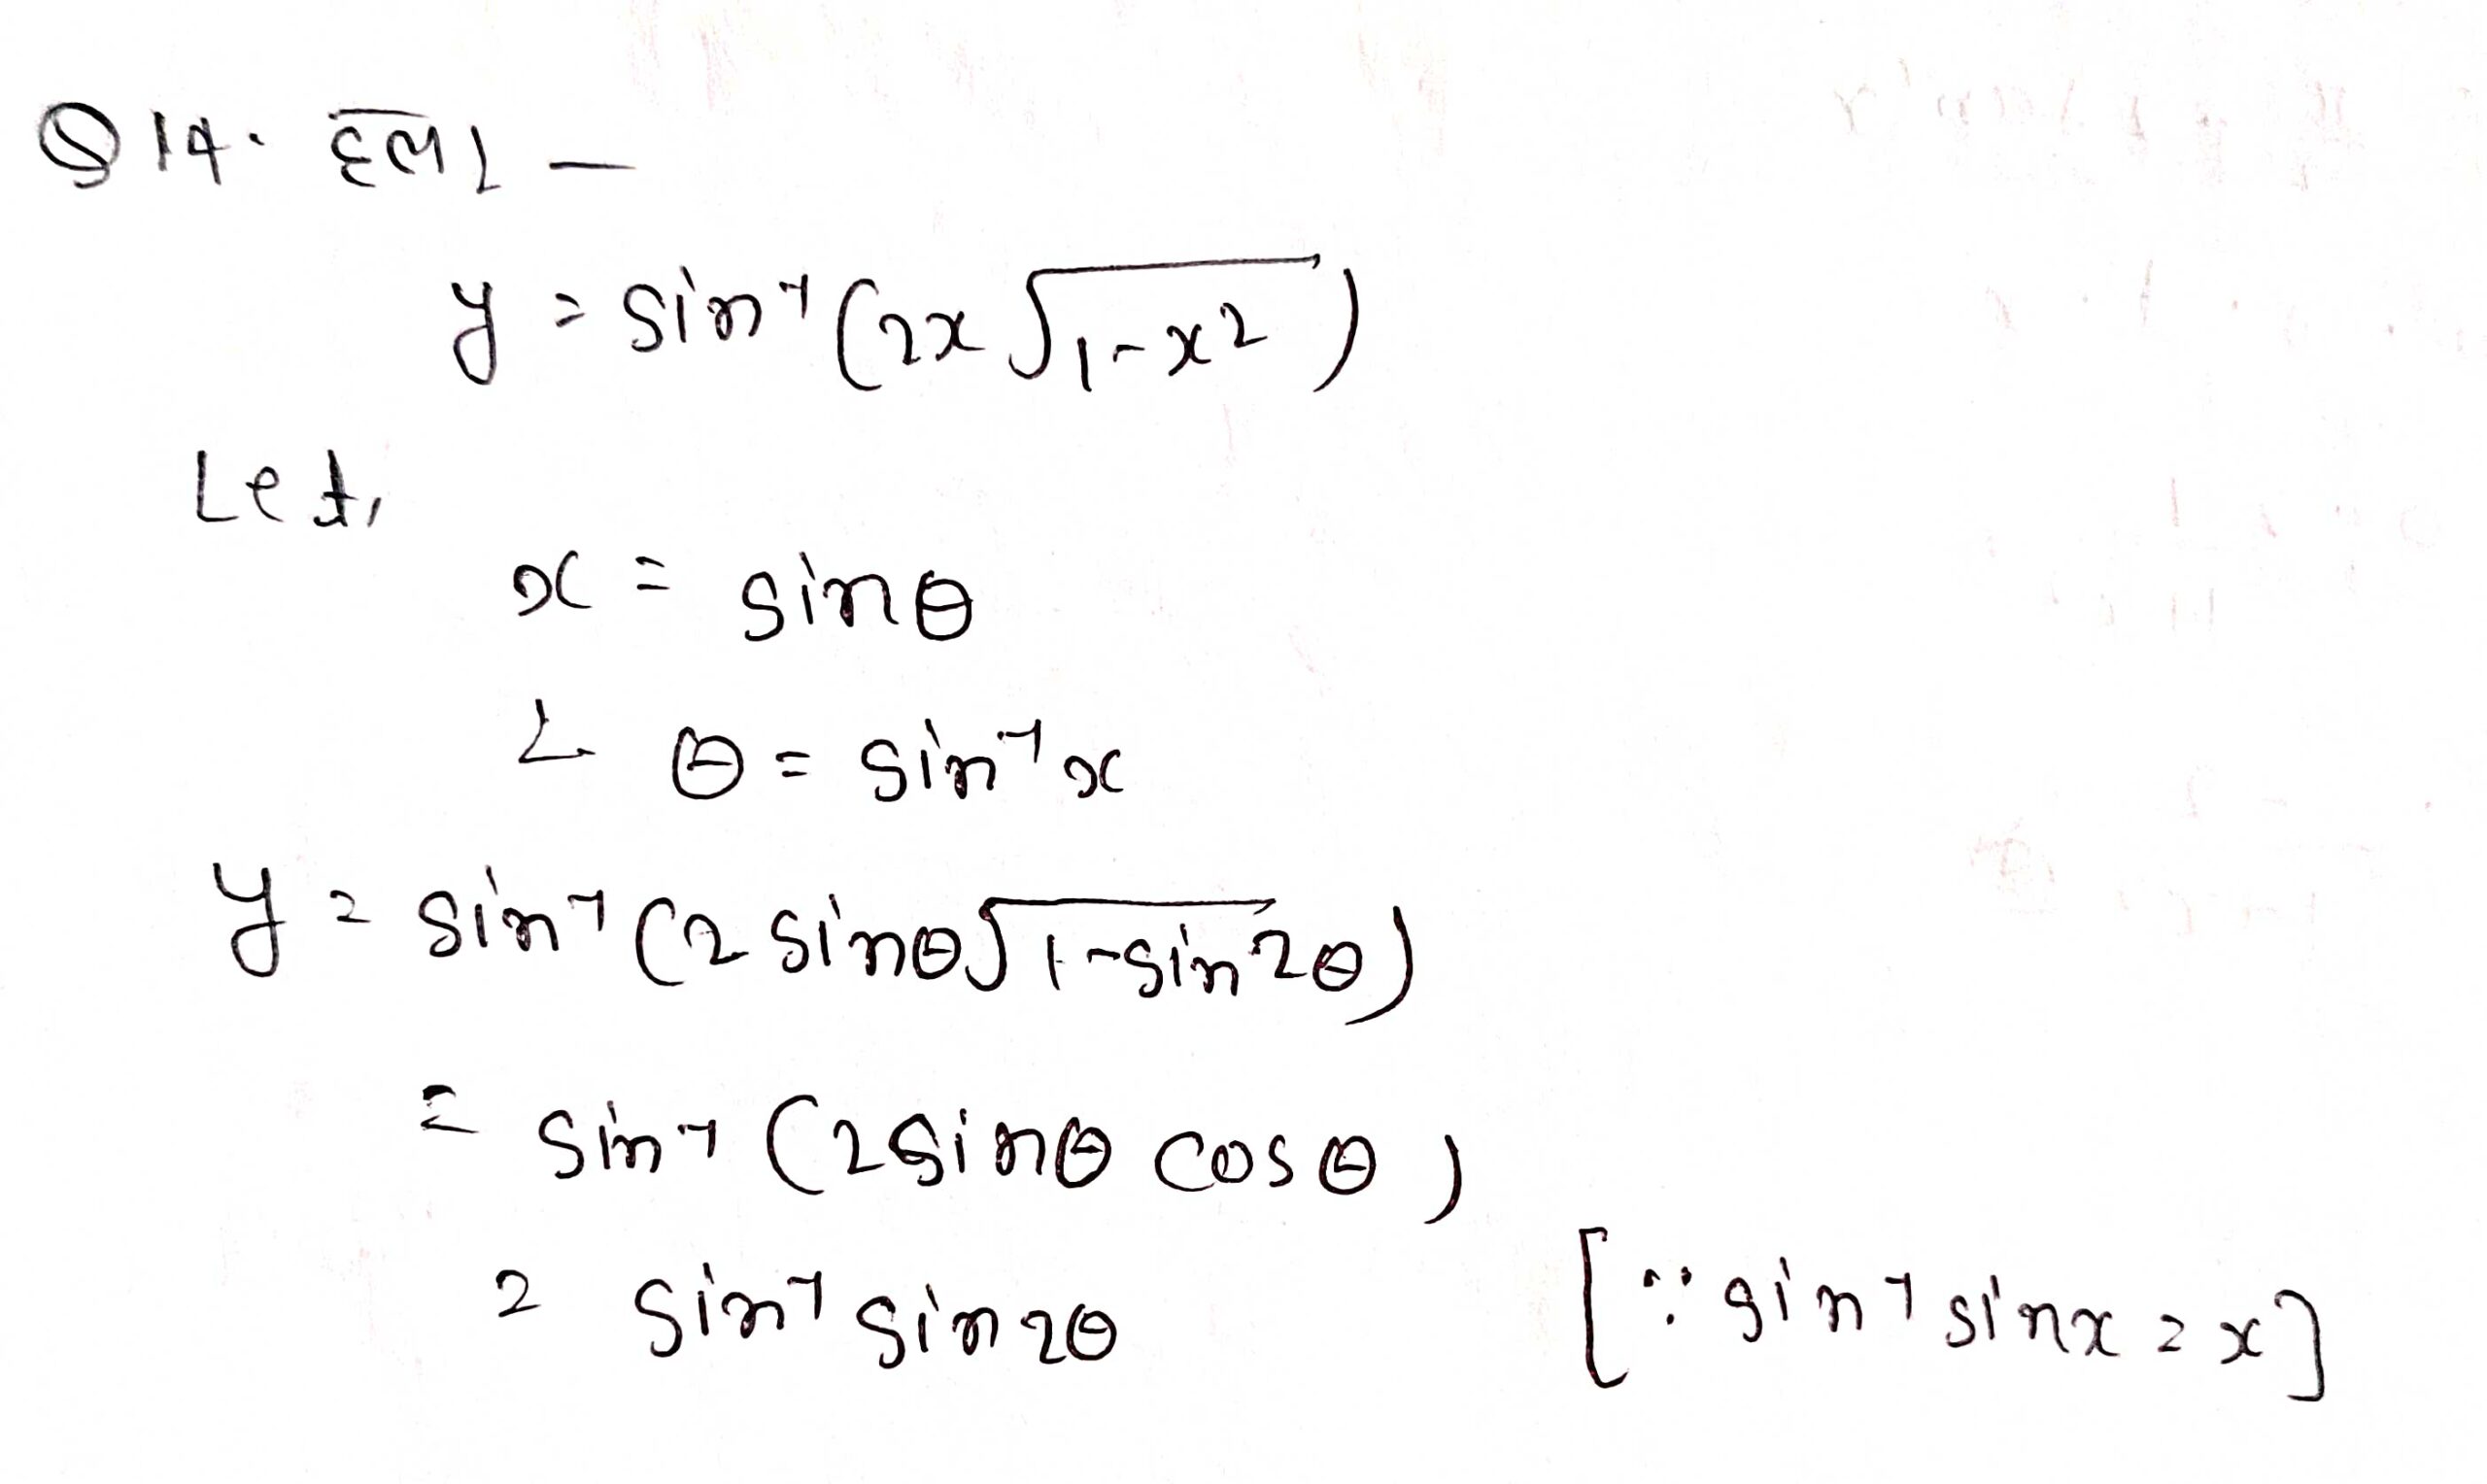 Q 14. हल :-
y = sin⁻¹ (2x √1-x²)
Let,
x = sinθ
& θ = sin⁻¹x
y = sin⁻¹ (2 sinθ √1-sin²θ)
= sin⁻¹ (2sinθ cosθ)
= sin⁻¹ sin2θ [∵ sin⁻¹ sinx = x]